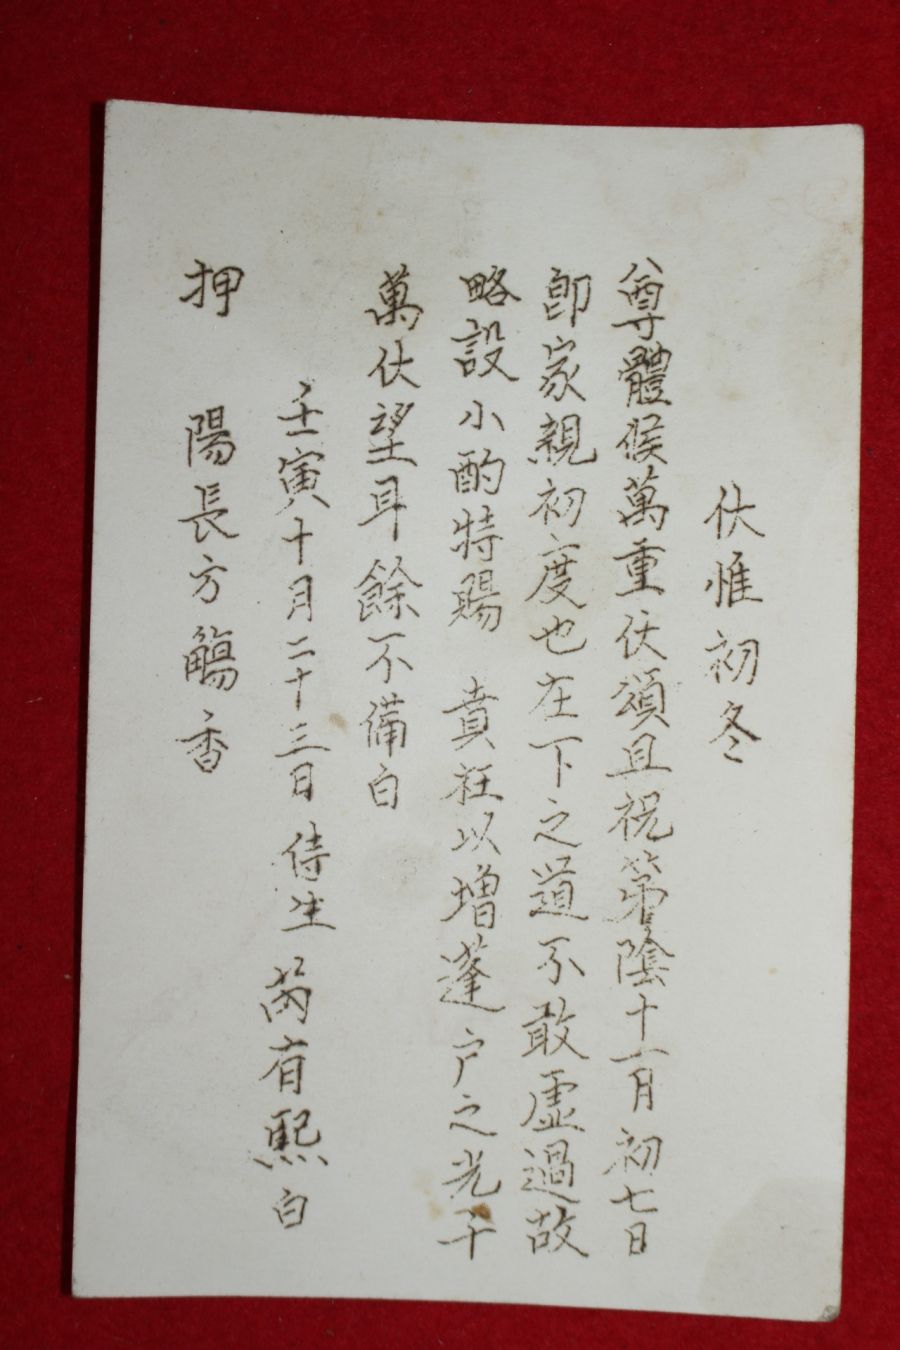 伏惟初冬
尊體候萬重伏頌且祝第陰十一月初七日
卽家親初度也在下之道不敢虛過故
略設小酌特賜 賁枉以增蓬戶之光千
萬伏望耳餘不備白
壬寅十月二十三日 侍生 芮有熙白
押 陽長方觴香